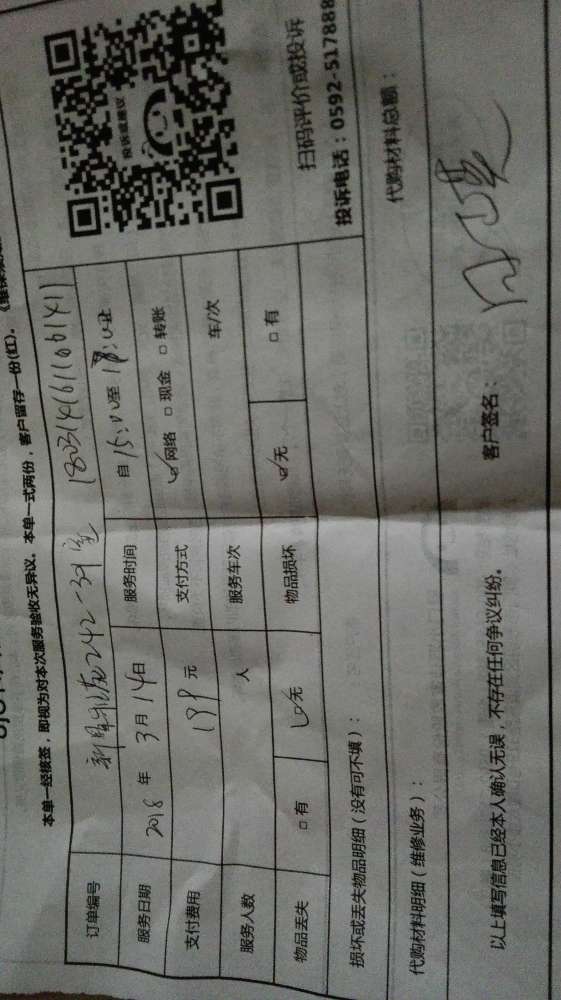 本单一经接签，即视为对本次服务验收无异议。本单一式两份，客户留存一份(红)。
订单编号 242-39室 1803141611001411
服务日期 2018 年 3 月 14 日 服务时间 自 15:00 至 18:00止
支付费用 199 元 支付方式 ☑网络 □现金 □转账
服务人数 人 服务车次 车/次
物品丢失 □有 ☑无 物品损坏 ☑无 □有
投诉或建议
扫码评价或投诉
投诉电话：0592-517888
损坏或丢失物品明细（没有可不填）：
代购材料明细（维修业务）： 代购材料总额：
以上填写信息已经本人确认无误，不存在任何争议纠纷。 客户签名：